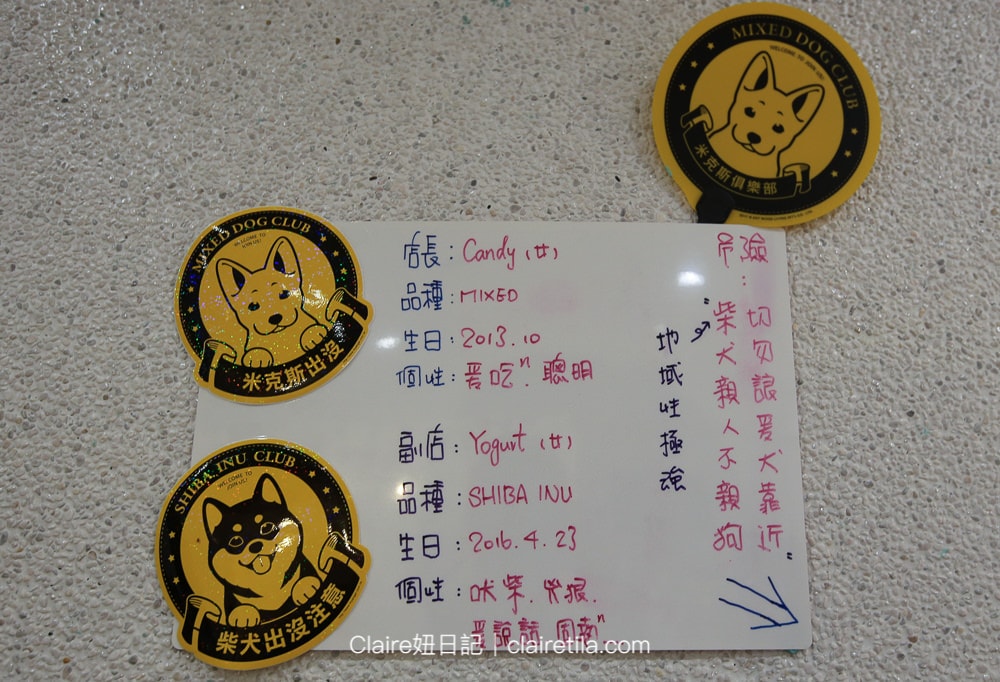 MIXED DOG CLUB
WELCOME TO JOIN US!
米克斯俱樂部
MIXED DOG CLUB
WELCOME TO JOIN US!
米克斯出沒
SHIBA INU CLUB
WELCOME TO JOIN US!
柴犬出沒注意
店長：Candy (女)
品種：MIXED
生日：2013.10
個性：愛吃. 聰明
副店：Yogurt (女)
品種：SHIBA INU
生日：2016.4.23
個性：吠柴. 兇狠.
愛說話
危險：
切勿讓愛犬靠近"
"柴犬親人不親狗
地域性極強
Claire妞日記｜clairetila.com